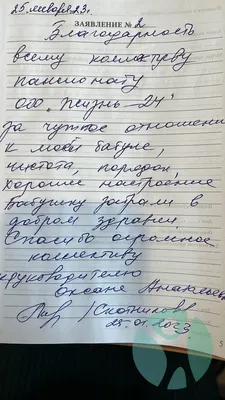 25 января 23г.
ЗАЯВЛЕНИЕ № 2
Благодарность
всему коллективу
пансионату
ООО "Жизнь-24"
за чуткое отношение
к моей бабуле,
чистота, порядок,
хорошее настроение
Бабушку забрали в
добром здравии
Спасибо огромное
коллективу
руководителю
Оксане
/Скотникова
25.01.2023
5